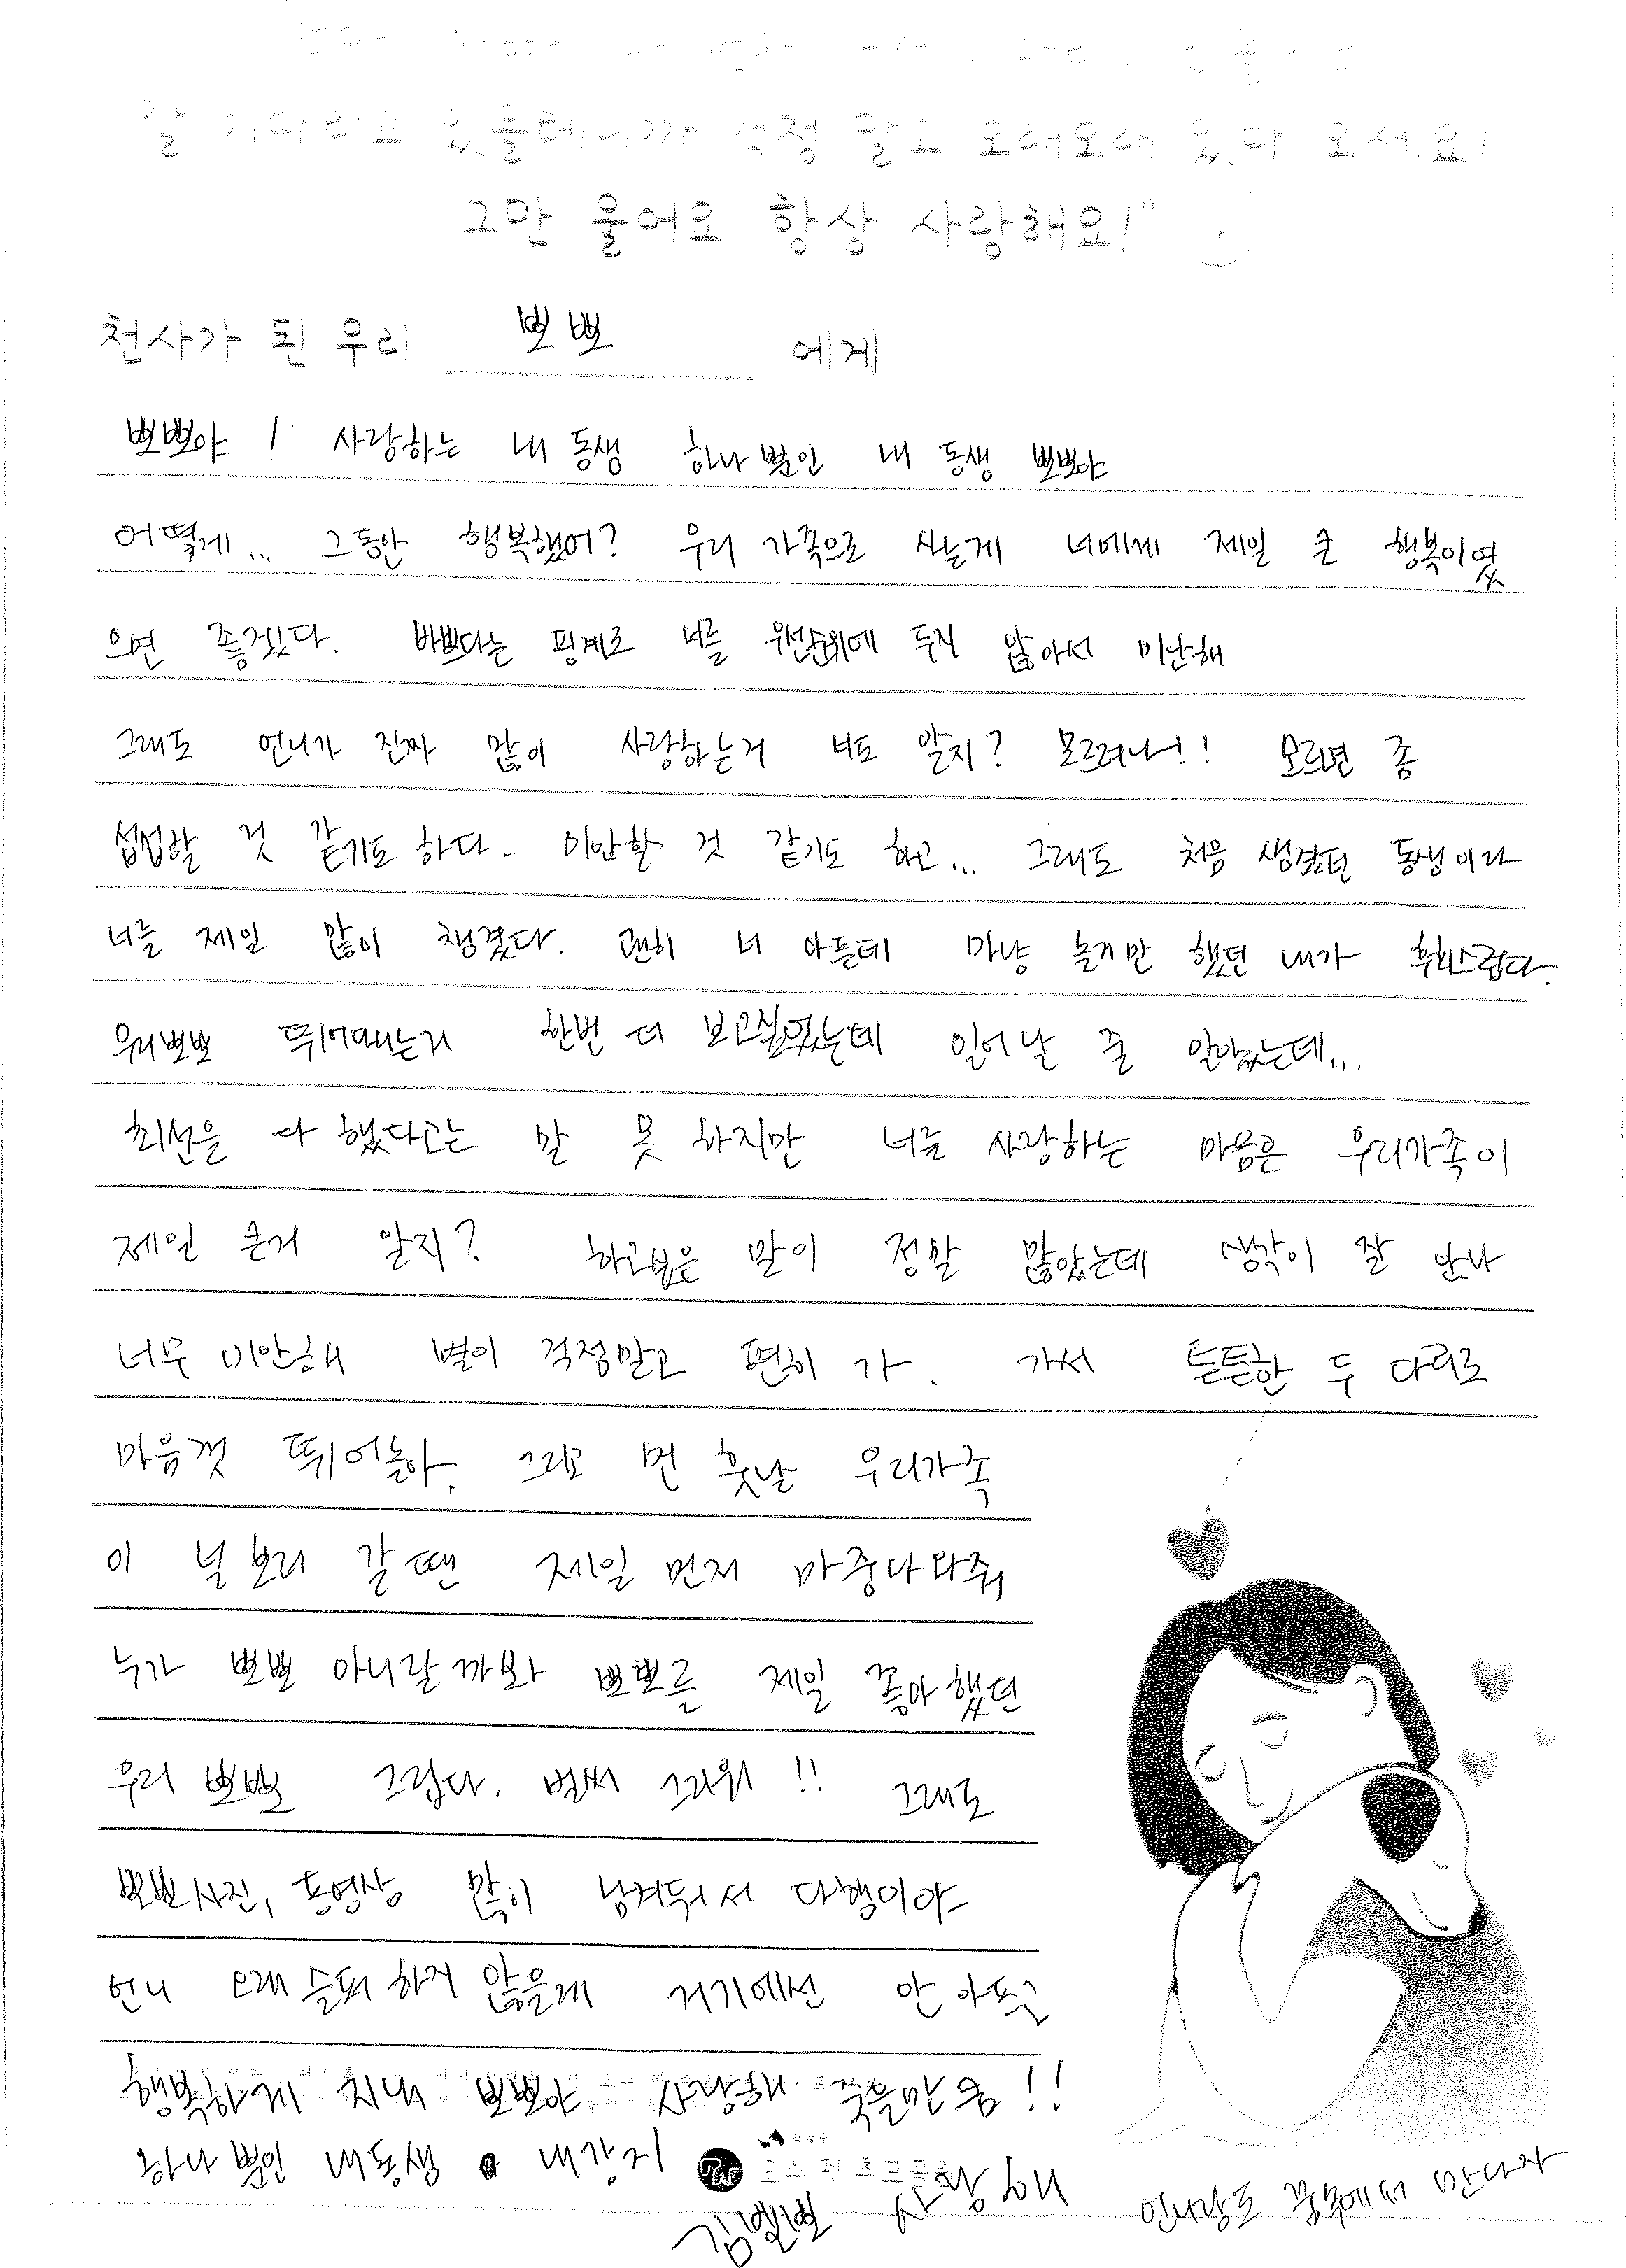 잘 기다리고 있을테니까 걱정 말고 오래오래 있다 오세요!
그만 울어요 항상 사랑해요!"
천사가 된 우리 뽀뽀 에게
뽀뽀야! 사랑하는 내 동생 하나뿐인 내 동생 뽀뽀야
어떻게... 그동안 행복했어? 우리 가족으로 사는게 너에게 제일 큰 행복이였
으면 좋겠다. 바쁘다는 핑계로 너를 우선순위에 두지 않아서 미안해
그래도 언니가 진짜 많이 사랑하는거 너도 알지? 모르려나!! 모르면 좀
섭섭할 것 같기도 하다. 미안할 것 같기도 하고... 그래도 처음 생겼던 동생이라
너를 제일 많이 챙겼다. 괜히 너 아픈데 마냥 놀지만 했던 내가 후회스럽다.
우리뽀뽀 뛰어다니는거 한번 더 보고싶었는데 일어날 줄 알았는데...
최선을 다 했다고는 말 못 하지만 너를 사랑하는 마음은 우리가족이
제일 큰거 알지? 하고싶은 말이 정말 많았는데 생각이 잘 안나
너무 미안해 별이 걱정말고 편히 가. 가서 튼튼한 두 다리로
마음껏 뛰어놀아. 그리고 먼 훗날 우리가족
이 널 보러 갈 땐 제일 먼저 마중나와줘
누가 뽀뽀 아니랄까봐 뽀뽀를 제일 좋아했던
우리 뽀뽀 그립다. 벌써 그리워!! 그래도
뽀뽀사진, 동영상 많이 남겨둬서 다행이야
언니 오래 슬퍼하지 않을게 거기에선 안 아프고
행복하게 지내 뽀뽀야 사랑해 죽을만큼!!
하나뿐인 내동생 내강지
김뽀뽀 사랑해
언니랑도 꿈속에서 만나자